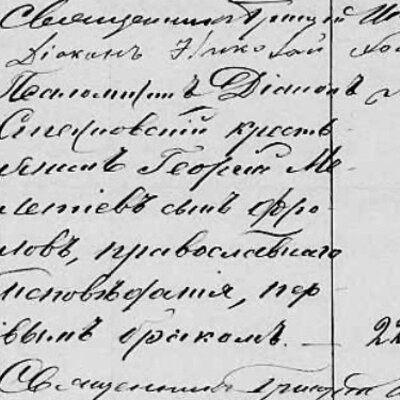 Священникъ Григорій
Діаконъ Николай
Псаломщикъ Діаконъ
кресть-
янинъ Георгій Ме-
летіевъ сынъ Фро-
ловъ, православнаго
исповѣданія, пер-
вымъ бракомъ. — 22
Священникъ Григорій